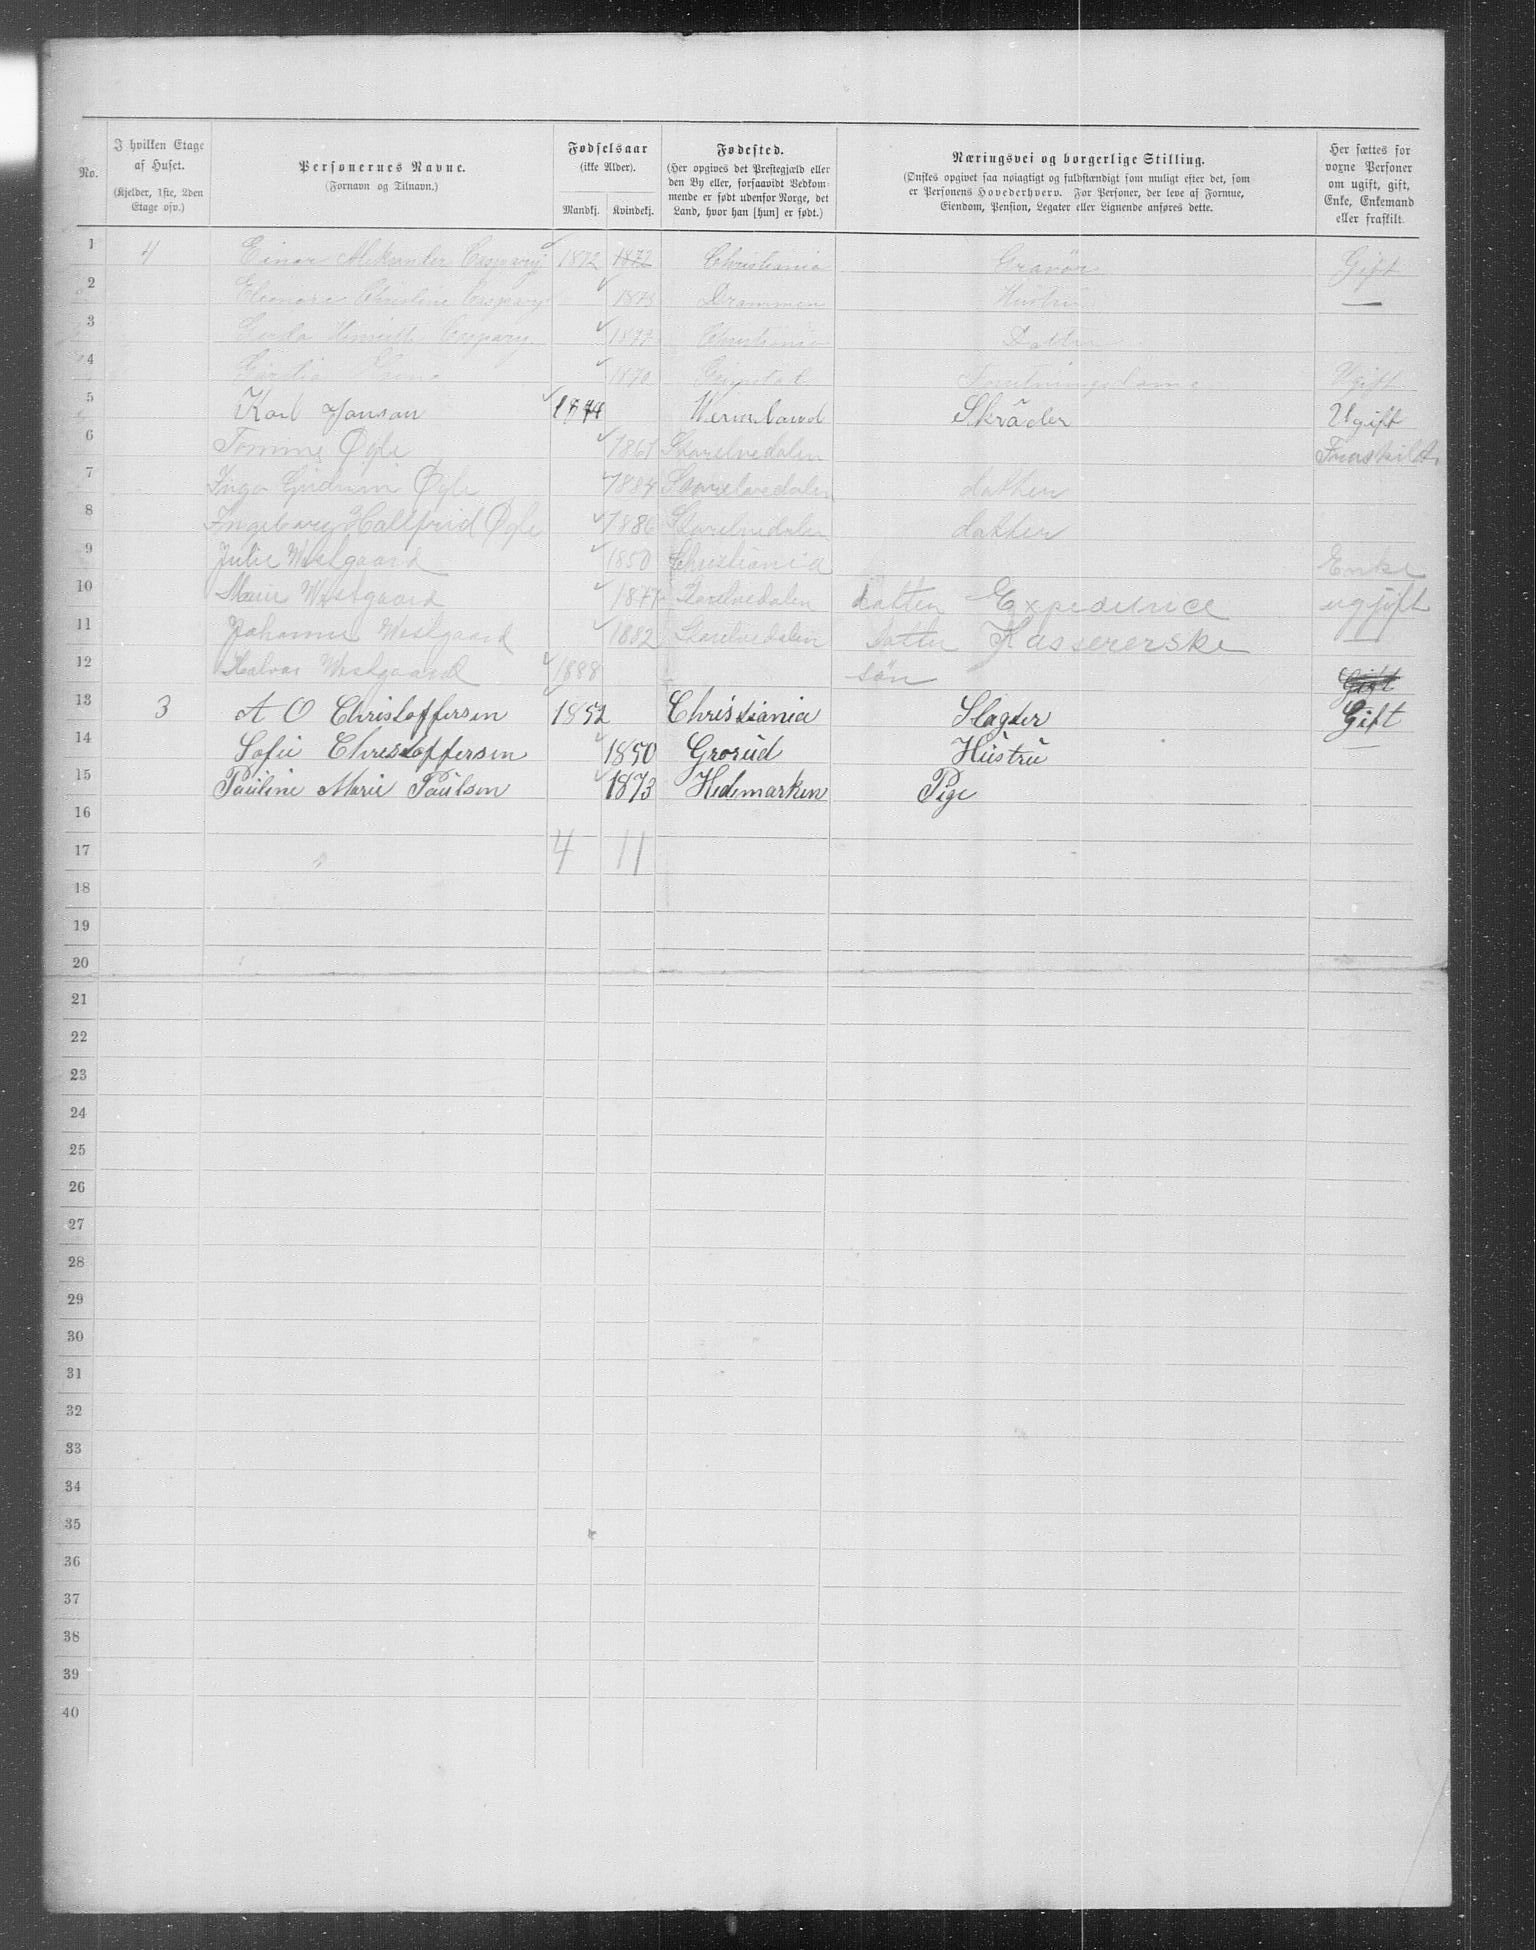 No.
I hvilken Etage af Huset.
(Kjelder, 1ste, 2den Etage osv.)
Personernes Navne.
(Fornavn og Tilnavn.)
Fødselsaar
(ikke Alder).
Mandkj. Kvindekj.
Fødested.
(Her opgives det Prestegjæld eller den By eller, forsaavidt Vedkommende er født udenfor Norge, det Land, hvor han [hun] er født.)
Næringsvei og borgerlige Stilling.
(Ønskes opgivet saa nøiagtigt og fuldstændigt som muligt efter det, som er Personens Hovederhverv. For Personer, der leve af Formue, Eiendom, Pension, Legater eller Lignende anføres dette.
Her sættes for voxne Personer om ugift, gift, Enke, Enkemand eller fraskilt.
1 4 Einar Aleksander Caspary 1872 1872 Christiania Gravør Gift
2 Eleonora Christine Caspary 1873 Drammen Hustru —
3 Caspary 1877 Christiania Datter
4 1870 Grimstad Ugift
5 Karl Jonson 1874 Vermland Skräder Ugift
6 Tomine Øgle 1861 Storelvedalen Fraskildt
7 Inga Gudrun Øgle 1884 Storelvedalen datter
8 Ingeborg Hallfrid Øgle 1886 Storelvedalen datter
9 Julie Westgaard 1850 Christiania Enke
10 Marie Westgaard 1877 Storelvedalen datter Expeditrice ugift
11 Johanne Westgaard 1882 Storelvedalen datter Kassererske —
12 Halvor Westgaard 1888 søn Gift
13 3 A O Christoffersen 1852 Christiania Slagter Gift
14 Sofie Christoffersen 1850 Grorud Hustru —
15 Pauline Marie Paulsen 1873 Hedemarken Pige
16
17 4 11
18
19
20
21
22
23
24
25
26
27
28
29
30
31
32
33
34
35
36
37
38
39
40